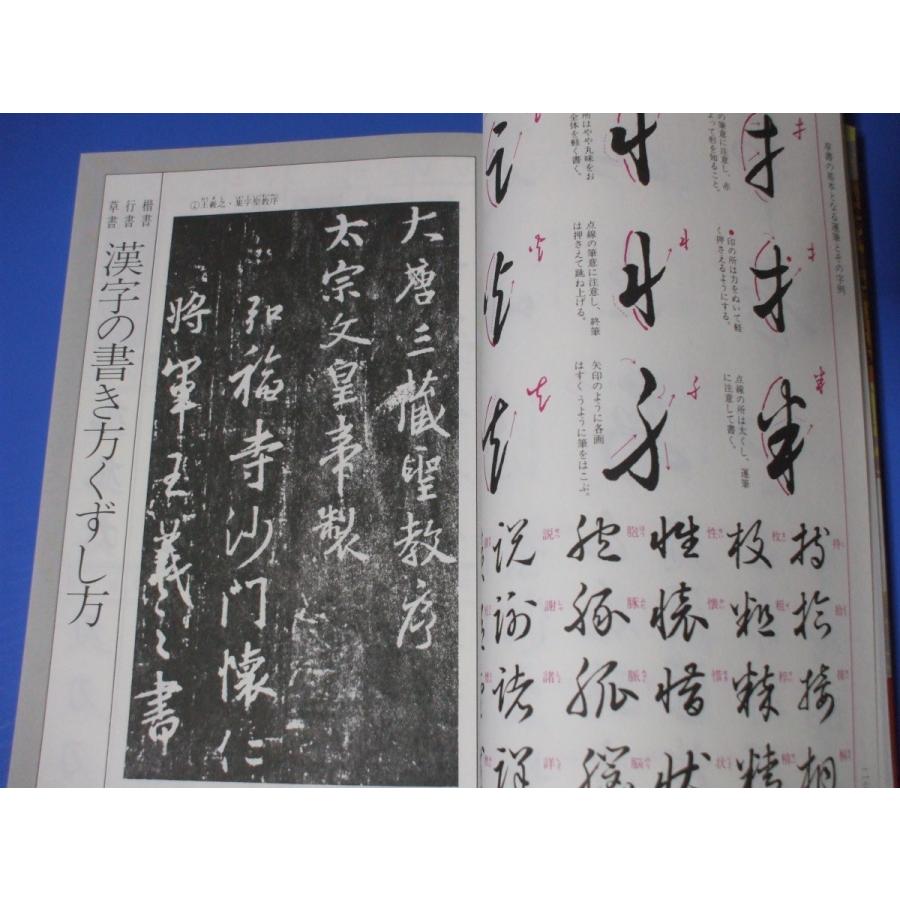 草書の基本となる運筆とその字例
の筆意に注意し、赤
よって形を知ること。
所はやや丸味をお
全体を軽く書く。
●印の所は力をぬいて軽
く押さえるようにする。
点線の筆意に注意し、終筆
は押さえて跳ね上げる。
点線の所は太くし、運筆
に注意して書く。
矢印のように各画
はすくうように筆をはこぶ。
持 枚 性 胞 説
拾 粗 懐 豚 謝
接 粋 惜 脈 諸
相 精 状 脳 詳
②王羲之・集字聖教序
大唐三蔵聖教序
太宗文皇帝製
弘福寺沙門懐仁
将軍王羲之書
楷書
行書
草書
漢字の書き方くずし方